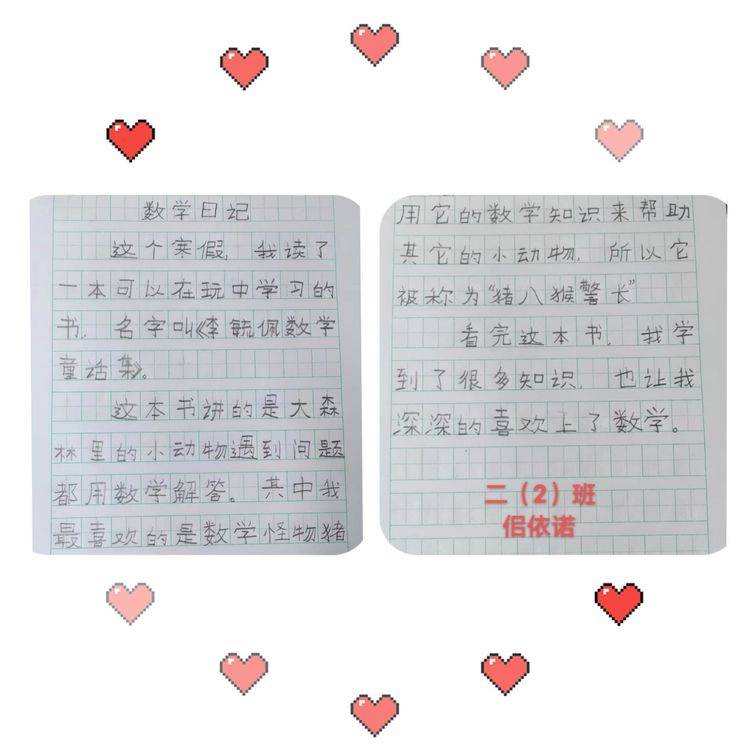 数学日记
这个寒假，我读了
一本可以在玩中学习的
书，名字叫《李毓佩数学
童话集》。
这本书讲的是大森
林里的小动物遇到问题
都用数学解答。其中我
最喜欢的是数学怪物猪
用它的数学知识来帮助
其它的小动物，所以它
被称为“猪八猴警长”
看完这本书，我学
到了很多知识，也让我
深深的喜欢上了数学。
二（2）班
侣依诺